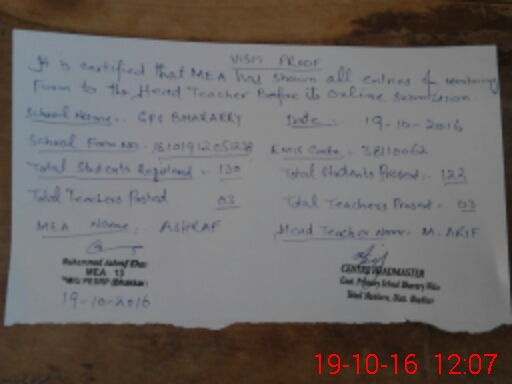 VISIT PROOF
It is certified that MEA has shown all entries of monitoring
Form to the Head Teacher Before its online submission
School Name:- GPS BHARARRY Date:- 19-10-2016
School Form No. 16101912051238 EMIS Code:- 38110062
Total Students Registered:- 130 Total Students Present:- 122
Total Teachers Posted 03 Total Teachers Present:- 03
MEA Name:- ASHRAF Head Teacher Name:- M. ARIF
Muhammad Ashraf Khan
MEA 13
(Bhakkar)
CENTRE HEADMASTER
Govt. Primary School Bharary
Distt. Bhakkar
19-10-2016
19-10-16 12:07